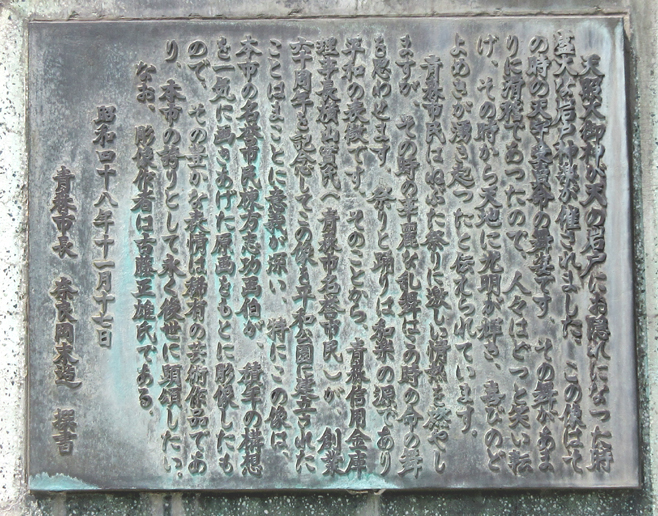 天照大御神が天の岩戸にお隠れになった時
盛大な岩戸神楽が催されました、この像はそ
の時の天宇受賣命の舞姿です その舞があま
りに滑稽であったので、人々はどっと笑い転
け、その時から天地に光明が輝き、喜びのど
よめきが湧き起ったと伝えられています。
青森市民はねぶた祭りに激しい情熱を燃やし
ますが、その時の華麗な乱舞はこの時の命の舞
を思わせます 祭りと踊りは和楽の源であり
平和の表徴です。そのことから、青森信用金庫
理事長横山實氏(青森市名誉市民)が 創業
六十周年を記念してこの像を平和公園に建立された
ことはまことに意義が深い、特にこの像は、
本市の名誉市民棟方志功画伯が、積年の構想
を一気に画きあげた原画をもとに彫像したも
ので、その豊かな表情は稀有の芸術作品であ
り、本市の誇りとして永く後世に頌したい。
なお、彫像作者は古藤正雄氏である。
昭和四十八年十一月十七日
青森市長 奈良岡末造 撰書